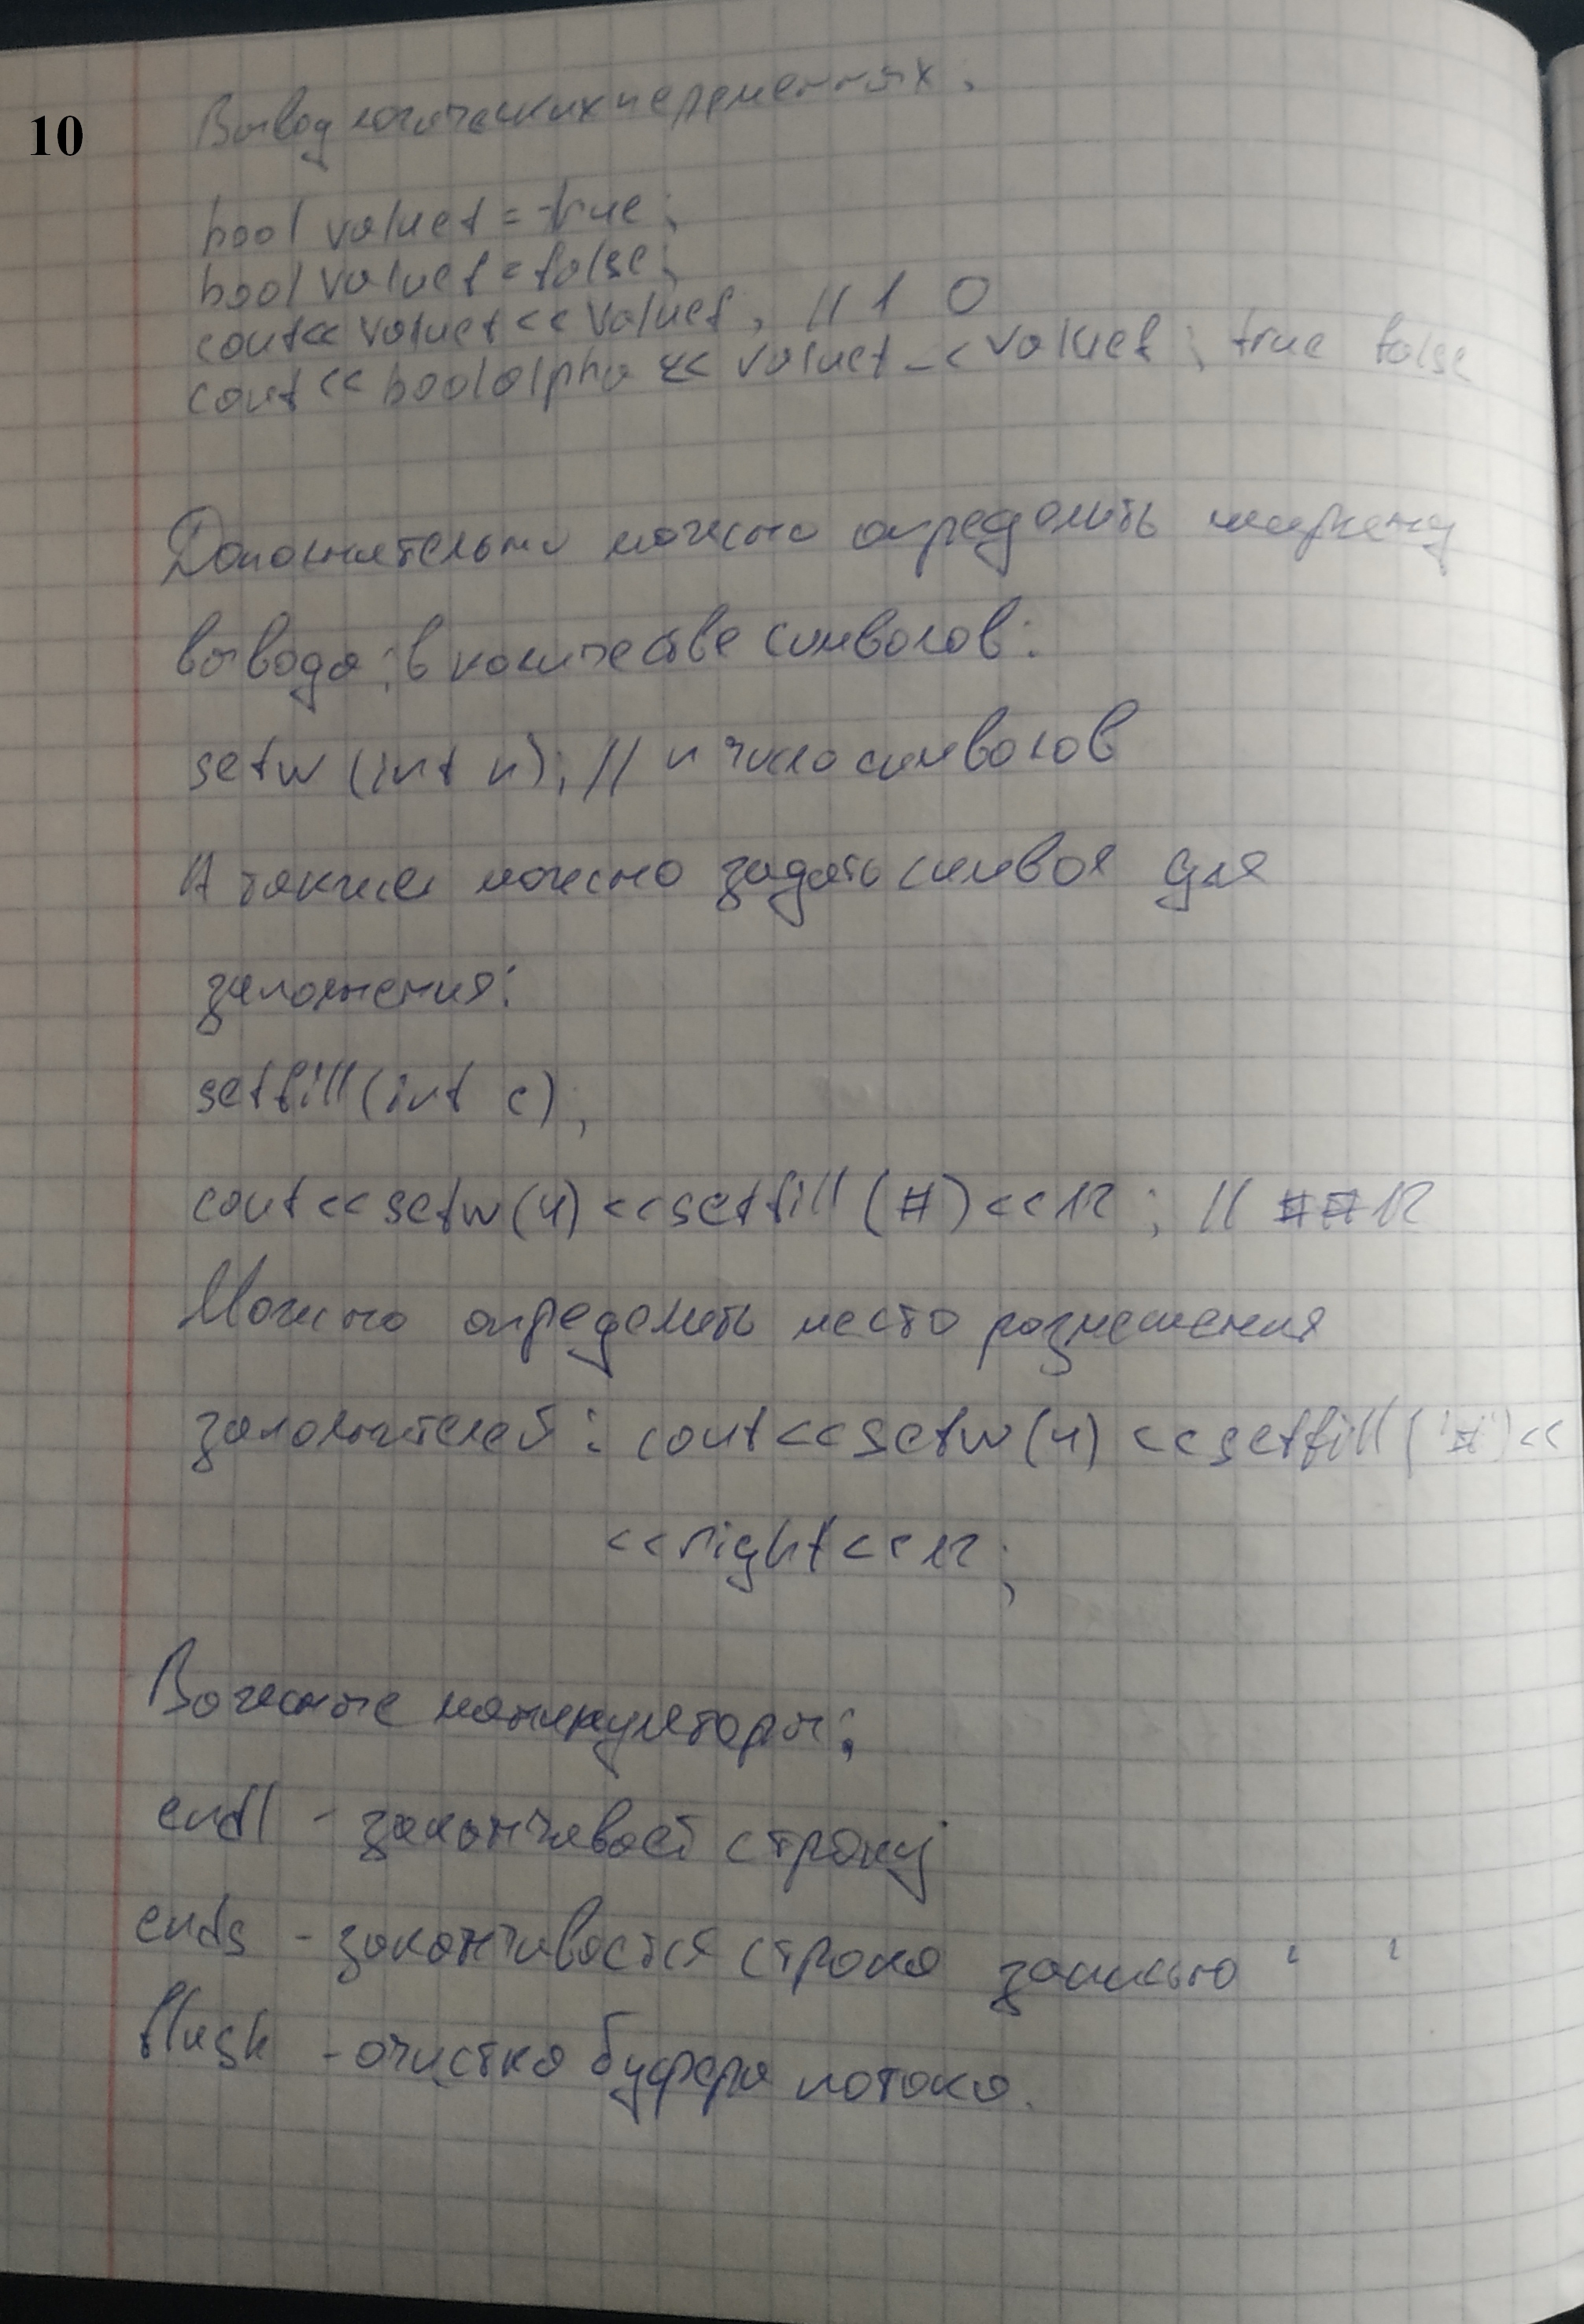 10
Вывод логических переменных.
bool valuet = true;
bool valuef = false;
cout<< valuet << valuef; // 1 0
cout << boolalpha << valuet << valuef; true false
Дополнительно можно определить ширину
вывода; в количестве символов:
setw (int n); // n число символов
А также можно задать символ для
заполнения:
setfill (int c);
cout<<setw(4)<<setfill(#)<<12; // ##12
Можно определить место размещения
заполнителей: cout<<setw(4)<<setfill('#')<<
<<right<<12;
Важные манипуляторы:
endl - заканчивает строку
ends - заканчивается строка записью ' '
flush - очистка буфера потока.